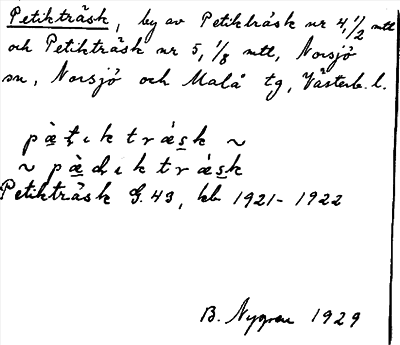 Petikträsk, by av Petikträsk nr 4, 1/2 mtl
och Petikträsk nr 5, 1/8 mtl, Norsjö
sn, Norsjö och Malå tg, Västerb. l.
pæ̀t̬ɩktræsk ~
~ pæ̀dɩktræsk
Petikträsk G. 43, kb 1921-1922
B. Nygren 1929